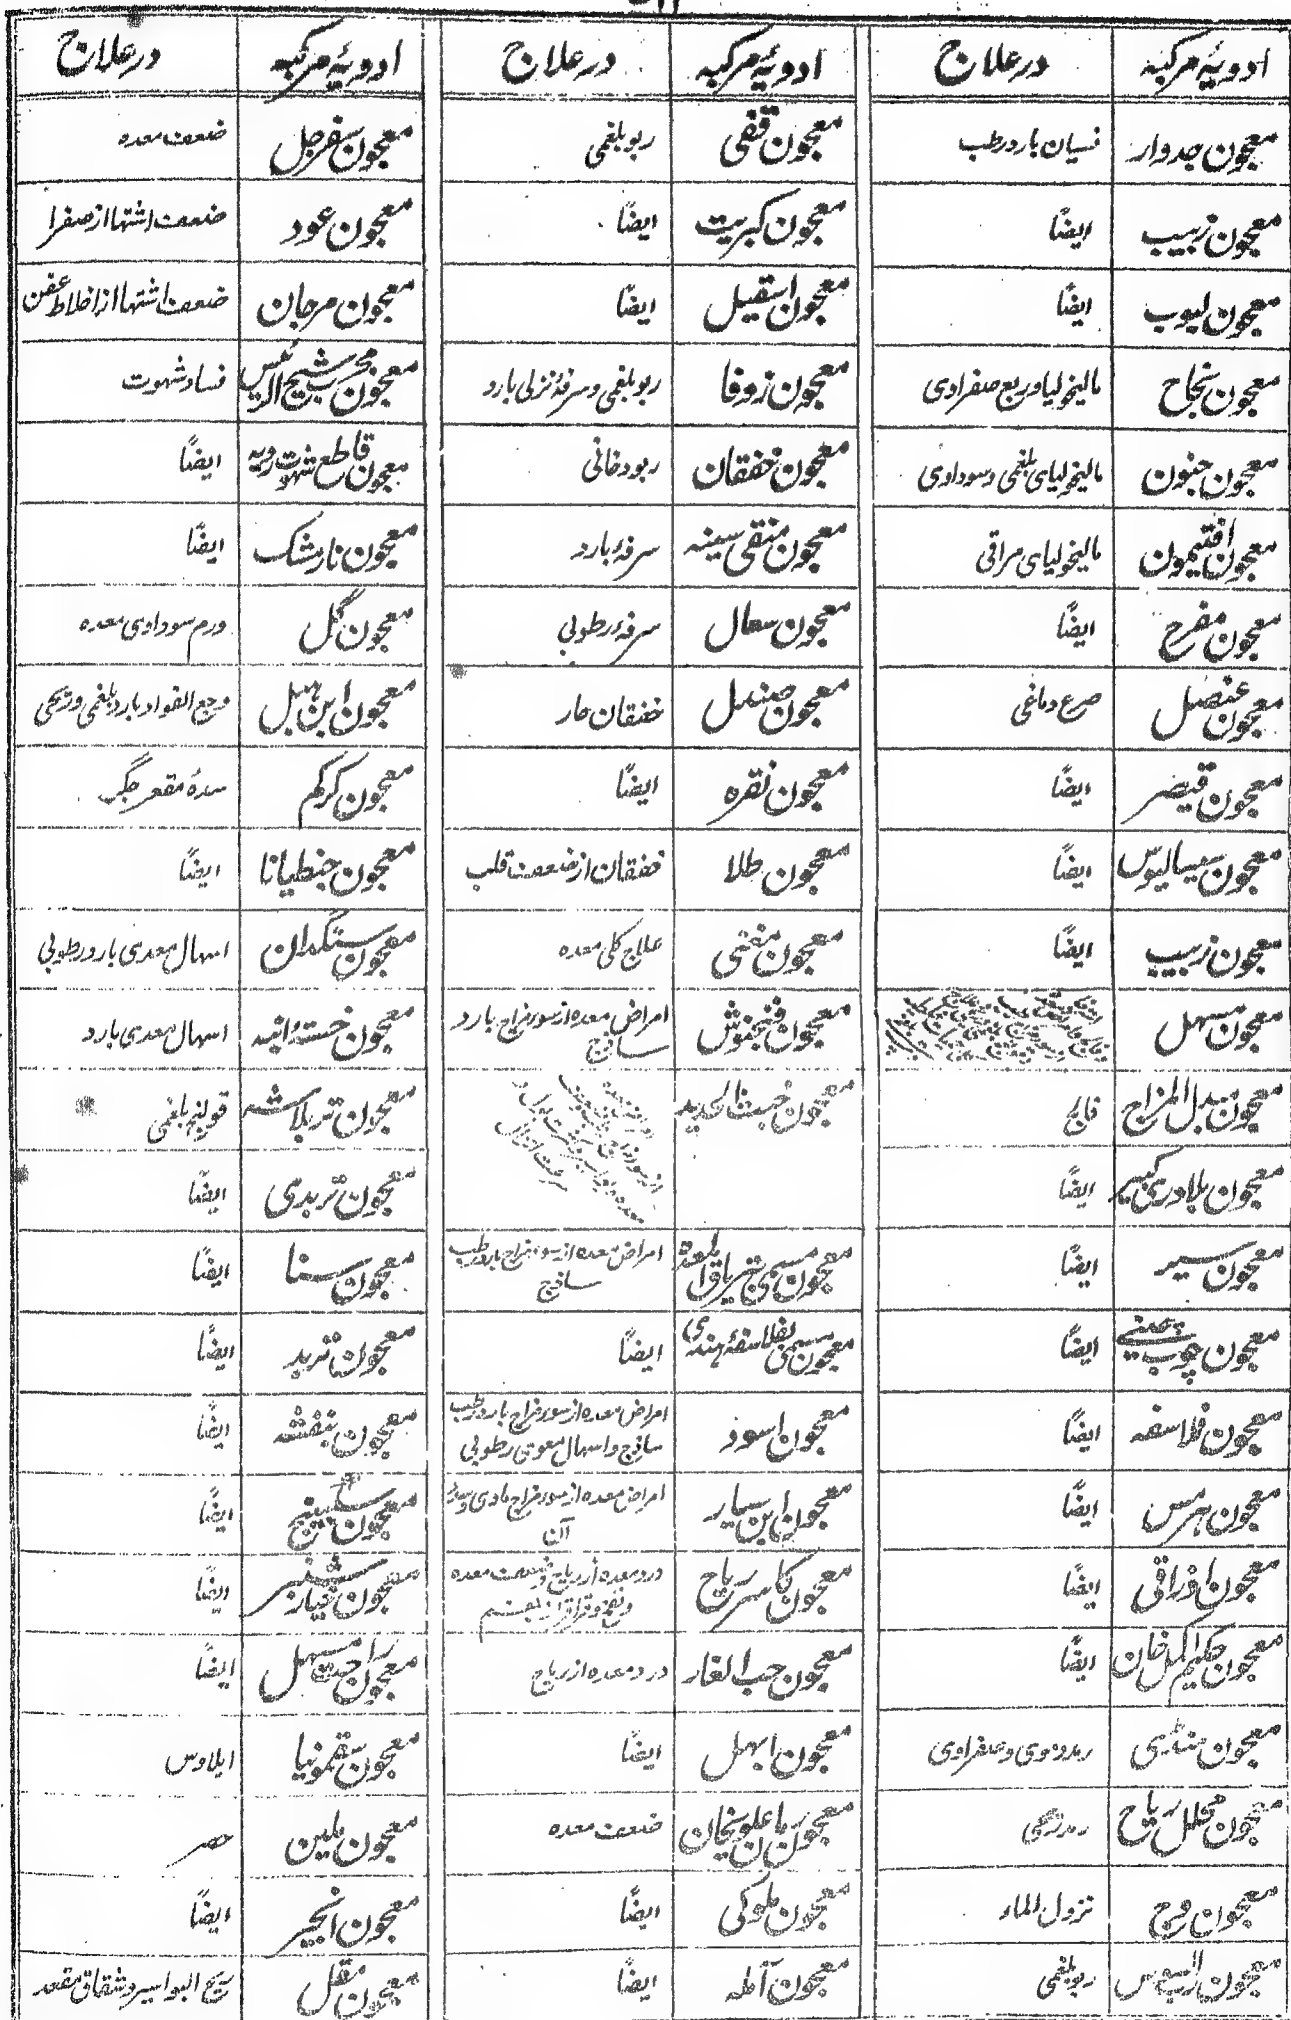 ادویۂ مرکبہ در علاج ادویۂ مرکبہ در علاج ادویۂ مرکبہ در علاج
معجون جدوار نسیان بارد رطب معجون قفی ربو بلغمی معجون سفرجل ضعف معدہ
معجون زبیب ایضاً معجون کبریت ایضاً معجون عود ضعف اشتہا از صفرا
معجون لبوب ایضاً معجون اسقیل ایضاً معجون مرجان ضعف اشتہا از اخلاط عفن
معجون نجاح مالیخولیا و ربع صفراوی معجون زوفا ربو بلغمی و سرفۂ نزلی بارد معجون مجرب شیخ الرئیس فساد شہوت
معجون جنون مالیخولیای بلغمی و سوداوی معجون خفقان ربو دخانی معجون قاطع شہوت ردیہ ایضاً
معجون افتیمون مالیخولیای مراقی معجون منقی سینہ سرفۂ بارد معجون نارمشک ایضاً
معجون مفرح ایضاً معجون سعال سرفۂ رطوبی معجون گل ورم سوداوی معدہ
معجون عنصل صرع دماغی معجون صندل خفقان حار معجون ابن ہبل وجع الفواد بارد بلغمی و ریحی
معجون قیصر ایضاً معجون نقرہ ایضاً معجون کرکم سدۂ مقعر جگر
معجون سیسالیوس ایضاً معجون طلا خفقان از ضعف قلب معجون جنطیانا ایضاً
معجون زبیب ایضاً معجون مغنی علاج کلی معدہ معجون سنگدان اسہال معدی بارد رطوبی
معجون مسہل معجون فنجنوش امراض معدہ از سوء مزاج بارد ساذج معجون خستۂ انبہ اسہال معدی بارد
معجون مبدل المزاج فالج معجون خبث الحدید معجون تربلاشہ قولنج بلغمی
معجون بلادری کبیر ایضاً معجون تربدی ایضاً
معجون سیر ایضاً معجون مسمی تریاق المعدہ امراض معدہ از سوء مزاج بارد رطب ساذج معجون سنا ایضاً
معجون چوب چینی ایضاً معجون مسمی بفلاسفۂ ہندی ایضاً معجون تربد ایضاً
معجون فلاسفہ ایضاً معجون اسود امراض معدہ از سوء مزاج بارد رطب
ساذج و اسہال معوی رطوبی معجون بنفشہ ایضاً
معجون ہرمس ایضاً معجون ابن سیار امراض معدہ از سوء مزاج مادی و سدۂ
آن معجون سکبینج ایضاً
معجون اذراقی ایضاً معجون کاسر ریاح درد معدہ از ریاح و ضعف معدہ
و نفخ و قراقر از بلغم معجون خیارشنبر ایضاً
معجون حکیم اکمل خان ایضاً معجون حب الغار درد معدہ از ریاح معجون راحت مسہل ایضاً
معجون رمد دموی و صفراوی معجون ابہل ایضاً معجون سقمونیا ایلاوس
معجون محلل ریاح رمد ریحی معجون ضعف معدہ معجون ملین حصر
معجون وج نزول الماء معجون ملوکی ایضاً معجون انجیر ایضاً
معجون رب السوس ربو بلغمی معجون آملہ ایضاً معجون مقل ریح البواسیر و شقاق مقعد